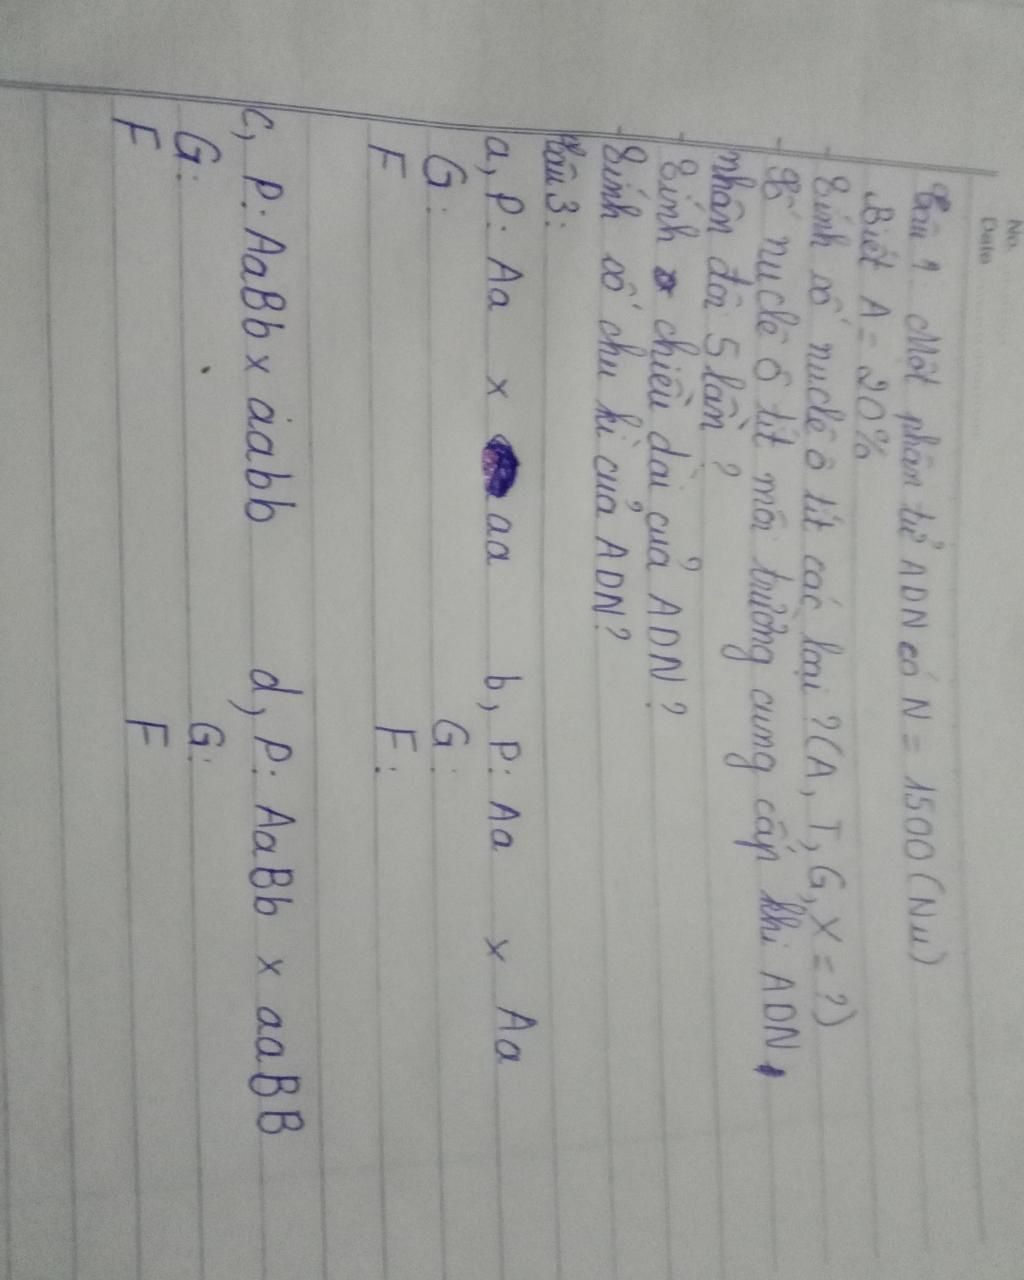 No.
Date
Câu 1: Một phân tử ADN có N = 1500 (Nu)
Biết A = 20%
- Tính số nuclê ô tít các loại? (A, T, G, X = ?)
- Số nuclê ô tít môi trường cung cấp khi ADN
nhân đôi 5 lần?
- Tính chiều dài của ADN?
- Tính số chu kì của ADN?
Câu 3:
a, P: Aa x aa b, P: Aa x Aa
G: G:
F F:
c, P: AaBb x aabb d, P: AaBb x aaBB
G: G:
F F